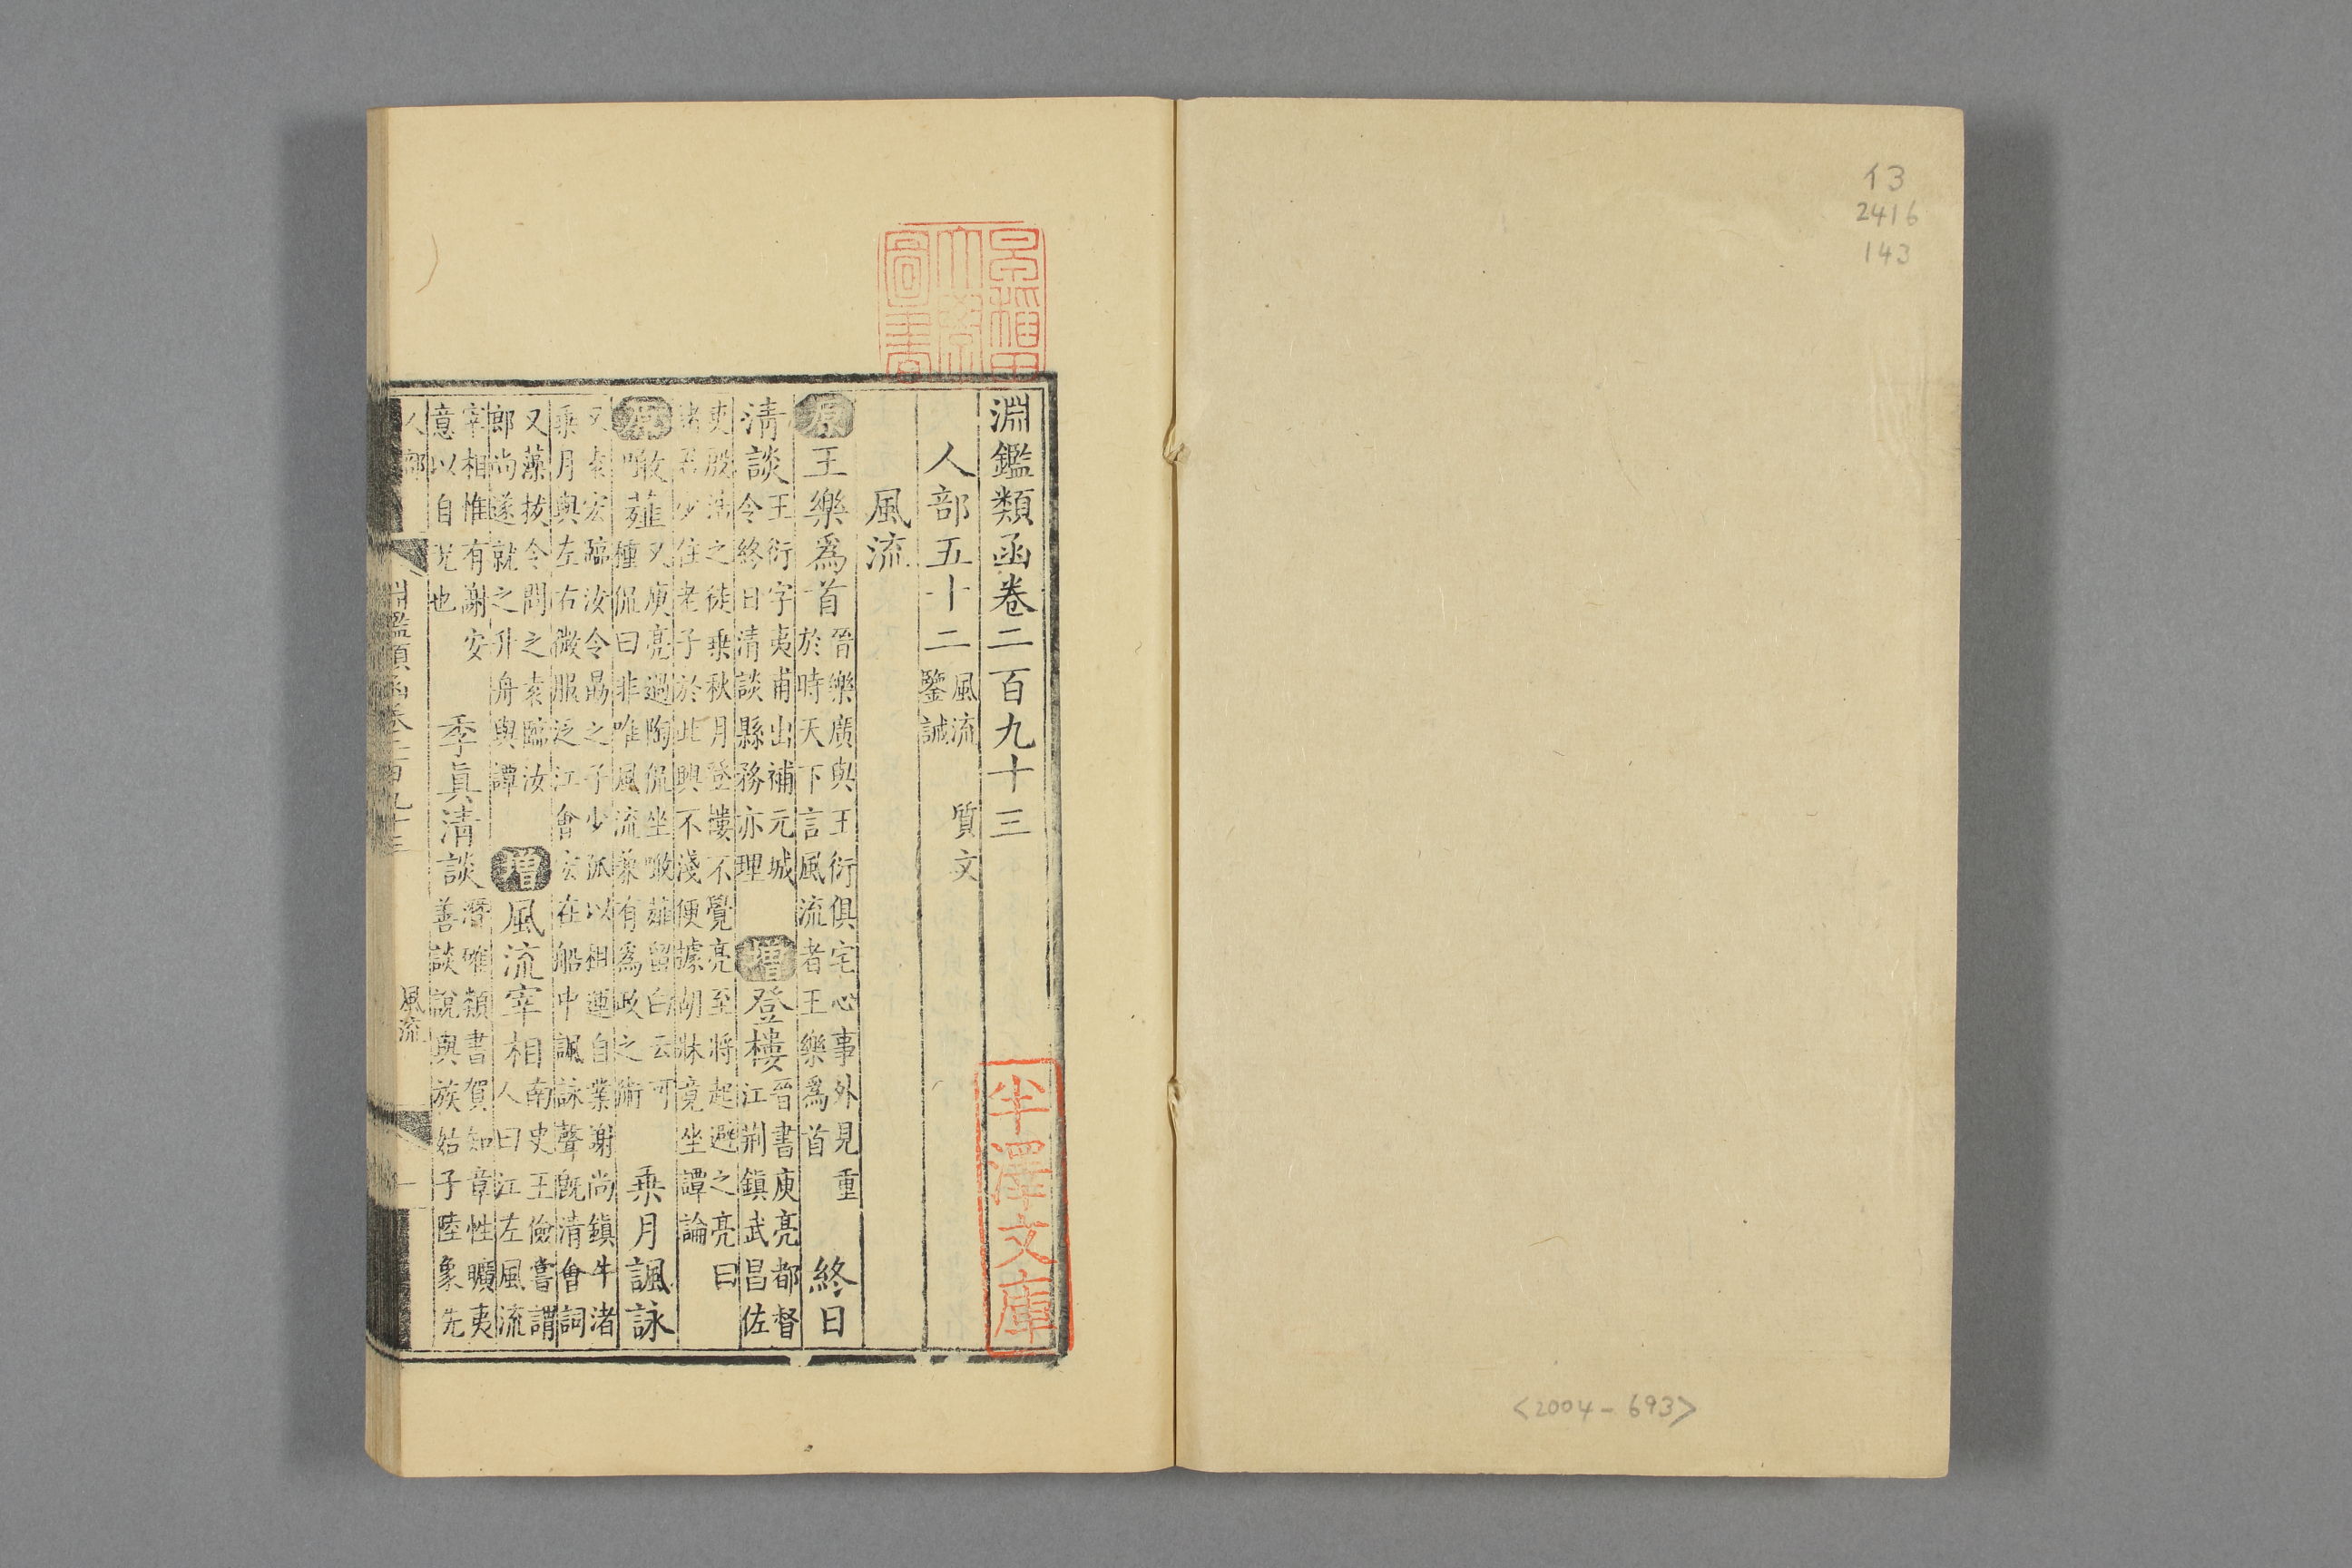 13
2416
143
<2004-693>
早稻田
大學
圖書
淵鑑類函卷二百九十三
半澤文庫
人部五十二 風流 質文
鑒誡
風流
原 王樂爲首 晉樂廣與王衍俱宅心事外見重
於時天下言風流者王樂爲首 終日
清談 王衍字夷甫出補元城
令終日清談縣務亦理 增 登樓 晉書庾亮都督
江荆鎮武昌佐
吏殷浩之徒乗秋月登樓不覺亮至將起避之亮曰
諸君少住老子於此興不淺便據胡牀竟坐譚論
原 噉薤 又庾亮過陶侃坐噉薤留白云可
種侃曰非唯風流兼有爲政之術 乗月諷詠
又袁宏臨汝令勗之子少孤以租運自業謝尚鎮牛渚
乗月與左右微服泛江會宏在船中諷詠聲旣清會詞
又藻拔令問之袁臨汝
郎尚遂就之升舟與譚 增 風流宰相 南史王儉嘗謂
人曰江左風流
宰相惟有謝安
意以自况也 季眞清談 潛確類書賀知章性曠夷
善談說與族姑子陸象先
人部 淵鑑類函卷二百九十三 風流 一